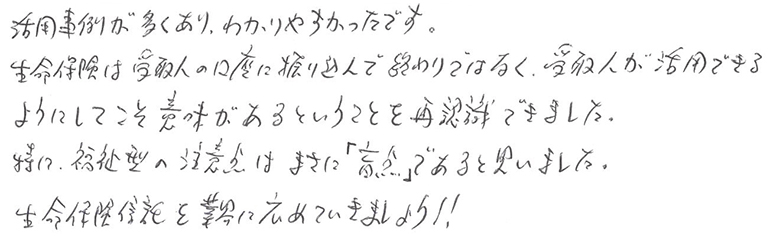 活用事例が多くあり、わかりやすかったです。
生命保険は受取人の口座に振り込んで終わりではなく、受取人が活用できる
ようにしてこそ意味があるということを再認識できました。
特に、福祉型の注意点はまさに「盲点」であると思いました。
生命保険信託を業界に広めていきましょう!!